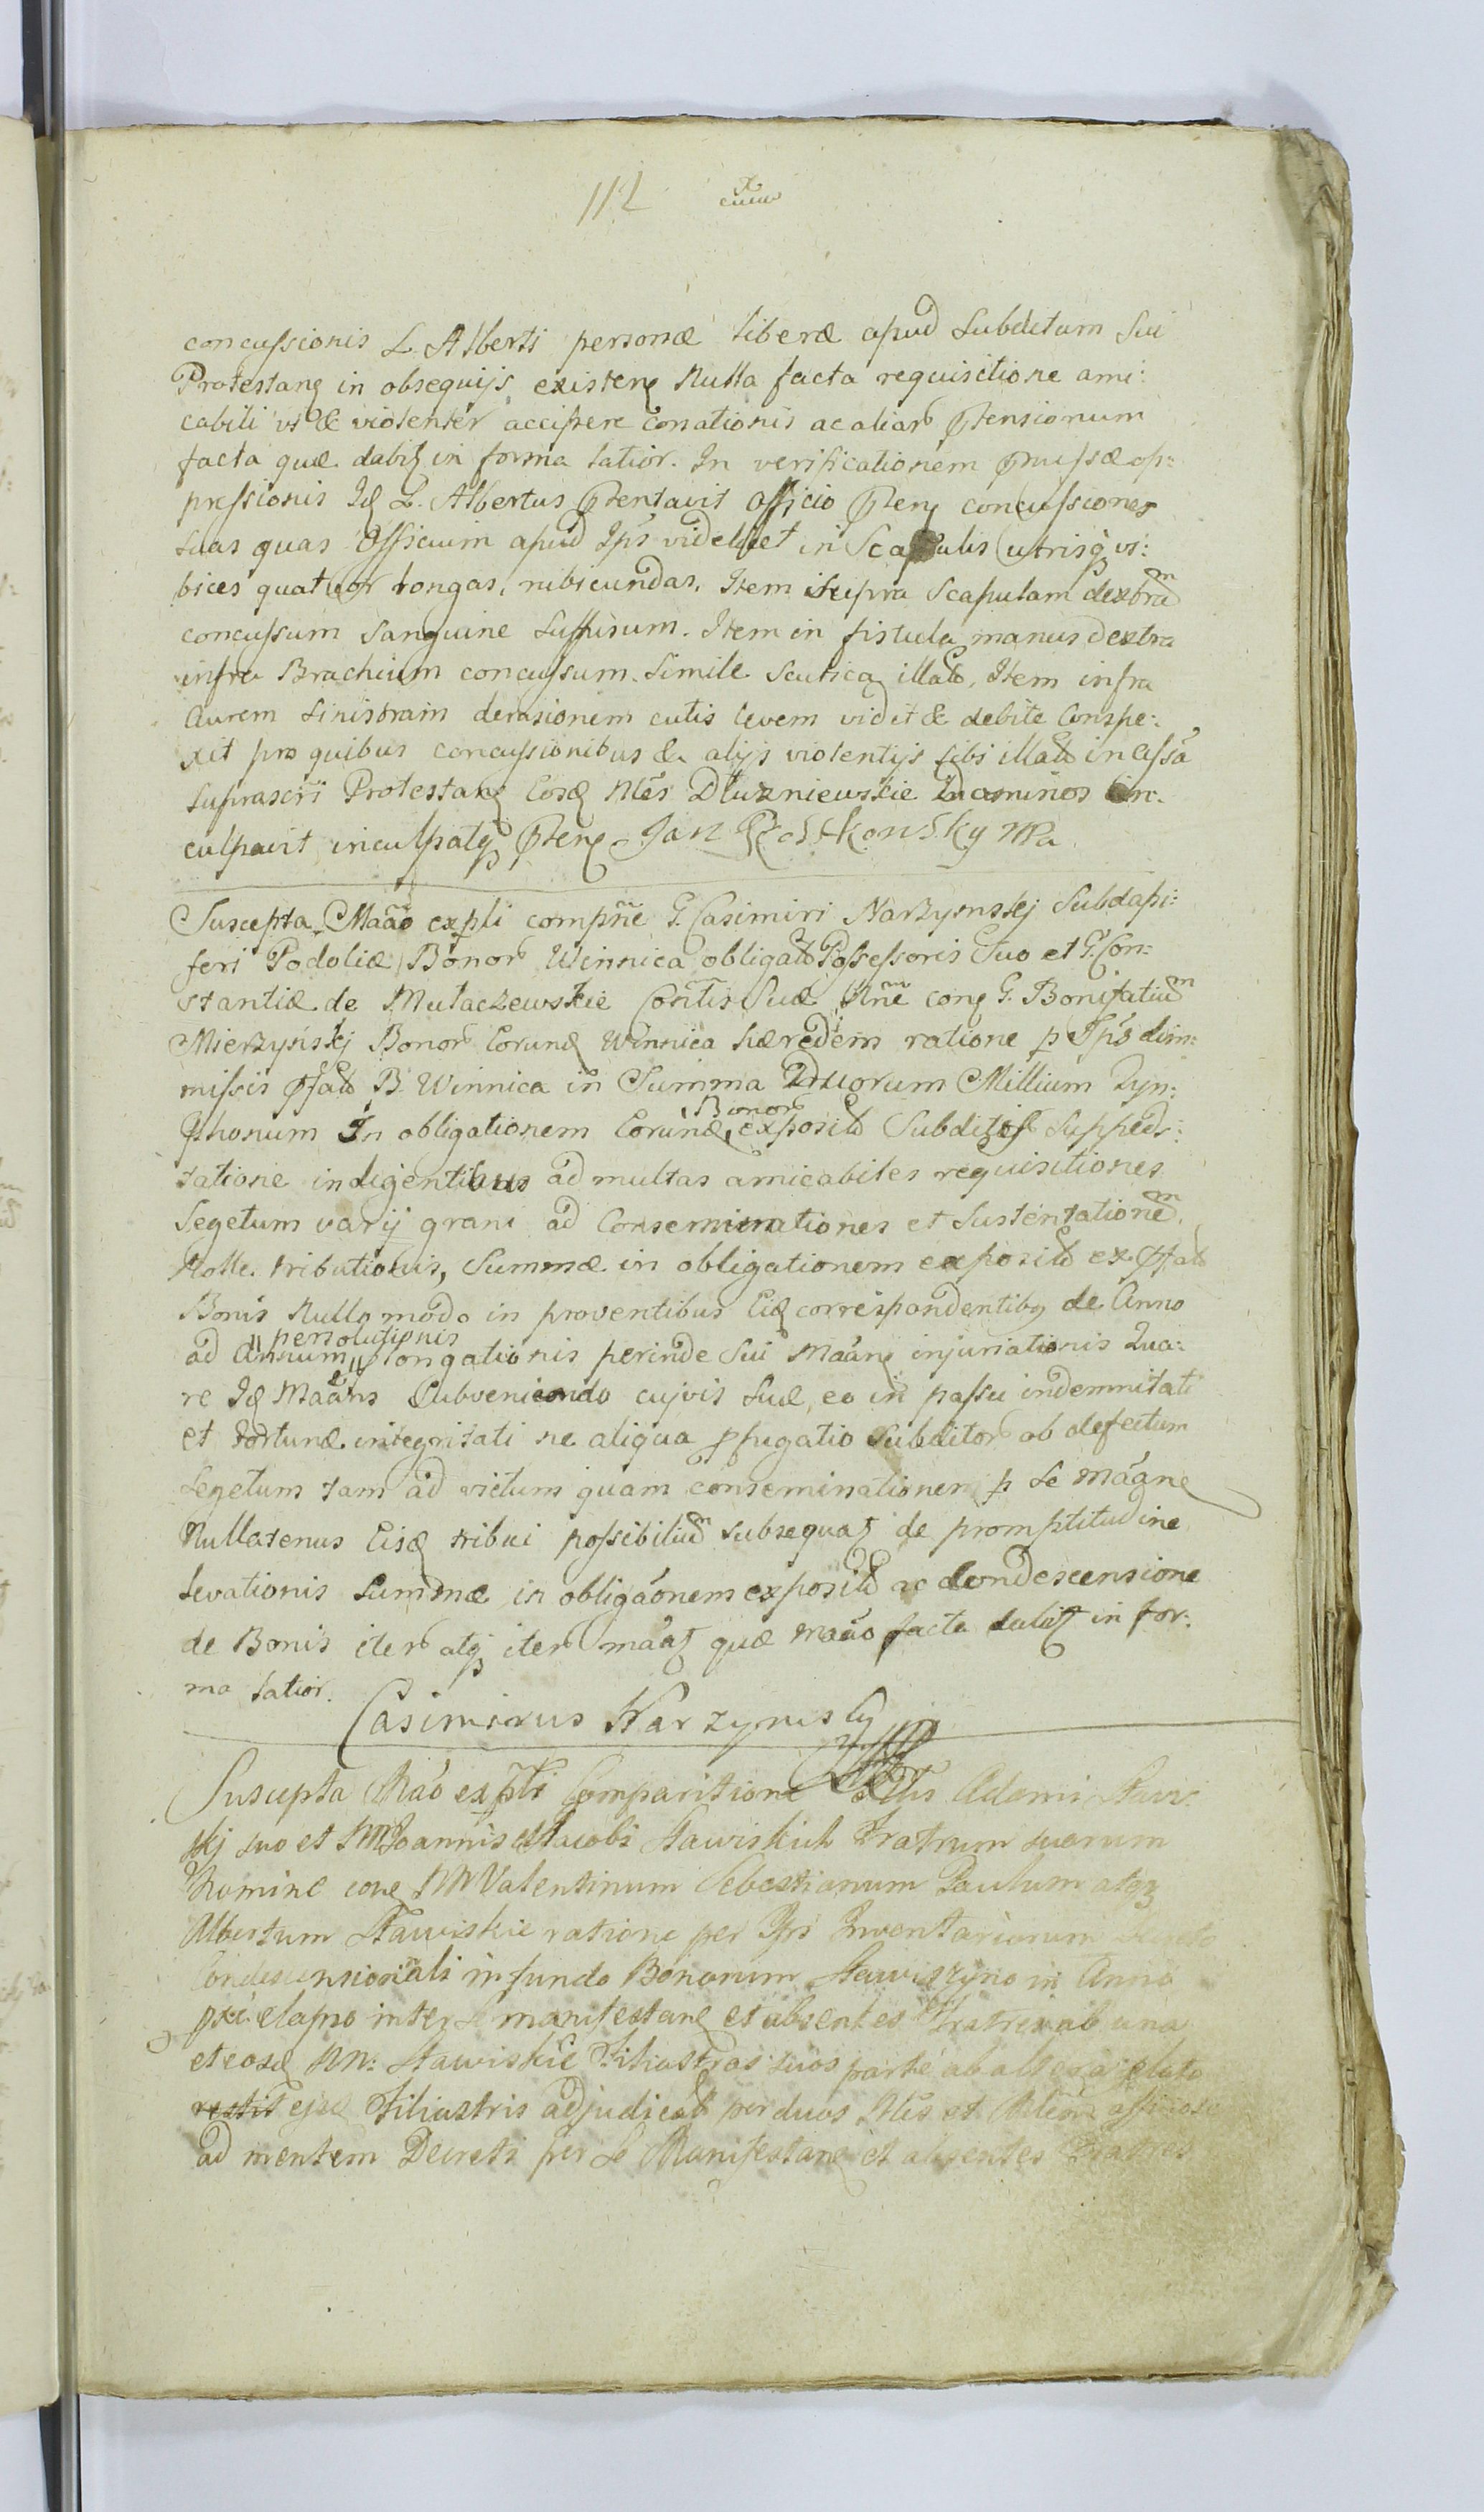 112
concussionis L. Alberti personæ liberæ apud Subditum Sui
Protestan in obsequijs existen Nulla facta requisitione ami:
cabili vi & violenter accipere conationis ac aliar ptensionum
facta quæ dabit in forma latior. In verificationem pmissæ op:
pressionis Id L. Albertus pntavit Officio pten concussiones
suas quas Officium apud Ips videlicet in Scapulis utrisq vi:
bices quatuor longas, rubicundas. Item supra Scapulam dextram
concussum Sanguine suffusum. Item in fistula manus dextra
infra Brachium concussum simile Scutica illato, Item infra
Aurem sinistram derasionem cutis levem vidit & debite Conspe:
xit pro quibus concussionibus & alijs violentijs sibi illatis
suprascri Protestan Eosd Nles Dluzniewskie
culpavit inculpatq pten Jan mpa
Suscepta Maão expli compne G. Casimiri Narzymskj Subdapi:
feri Podoliæ Bonor Winnica obligato Possessoris Suo et G. Con:
stantiæ de Mlaczewskie Contis Suæ Nne con G. Bonifatium
Mierzyńskj Bonor Eorund Winnica hæredem ratione p Ips dim:
missis pfato B. Winnica in Summa Duorum Millium Tyn:
phonum In obligationem Eorund Bonor exposito Subditos Suppedi:
tatione indigentibus ad multas amicabiles requisitiones
Segetum varij grani ad Conseminationes et Sustentationem
Nolle tributionis, Summæ in obligationem exposito ex pfato
Bonis Nullo modo in proventibus Eid correspondentibq de Anno
ad Annum persolutionis plongationis perinde Sui Maãn injuriationis Qua:
re Id Maans Subveniendo cujvis Suæ, eo in passu indemnitati
et fortunæ integritati ne aliqua pfugatio Subditor ob defectum
Segetum tam ad victum quam conseminationem p Se Maane
Nullatenus Eisd tribui possibilium subsequat de promptitudine
levationis Summæ in obligaonem exposito ac condescensione
de Bonis iter atq iter maat quæ maão facta dabit in for:
ma latior.
Casimirus Narzymsky
Suscepta Mao expli Comparitione Nlis Adami Staw:
skj suo et NN Joannis Jacobi Stawiskich Fratrum suorum
Nomine con NN Valentinum Sebastianum Paulum atq
Albertum Stawiskie ratione per Ips Inventarium
Condescensionali in fundo Bonorum Stawiszyno in Anno
pxi elapso inter se manifestan et absentes Fratres ab una
et eosd NN: Stawiskie Filiastros suos parte ab altera
ejsd Filiastris adjudicato per duos Nles et
ad mentem Decreti per se Manifestan et absentes Fratres